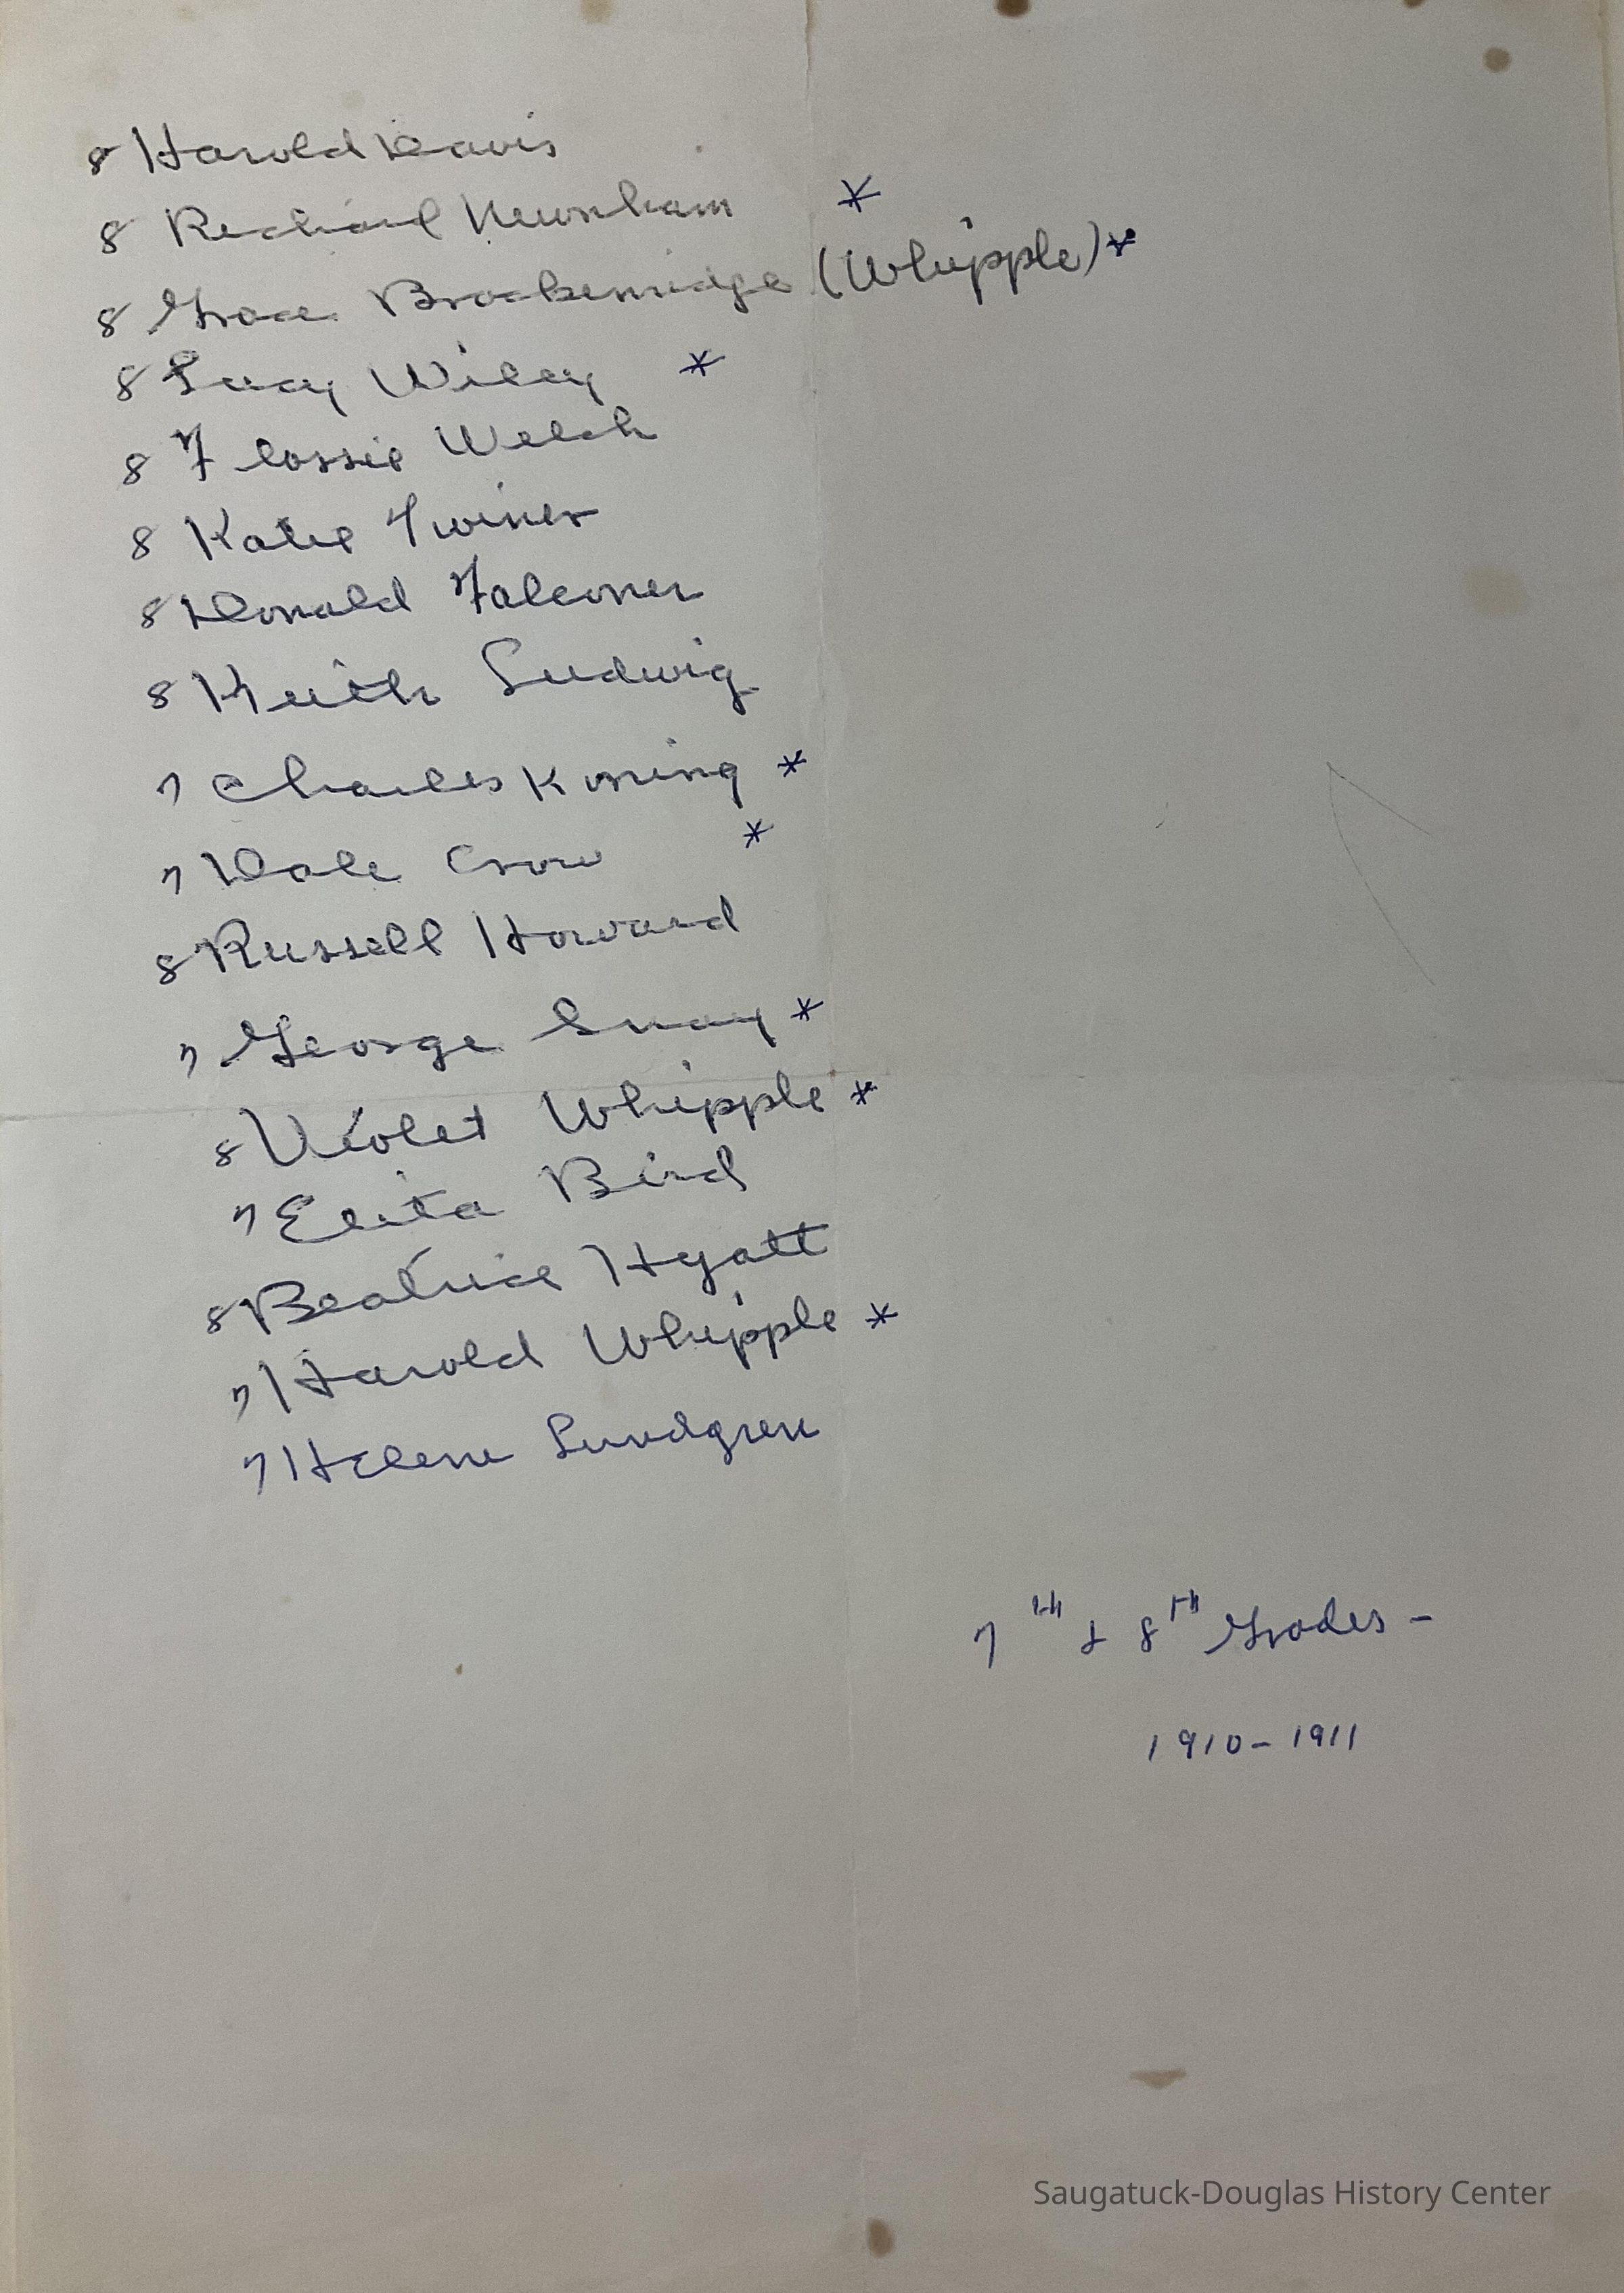 8 Harold Davis
8 Richard Newnham *
8 Grace Brackenridge (Whipple) *
8 Lucy Wiley *
8 Flossie Welch
8 Katie Twiner
8 Donald Falconer
8 Keith Ludwig
7 Charles Koning *
7 Dale Crow *
8 Russell Howard
7 George Snay *
8 Violet Whipple *
7 Elita Bird
8 Beatrice Hyatt
7 Harold Whipple *
7 Helene Lundgren
7th & 8th Grades -
1910-1911
Saugatuck-Douglas History Center